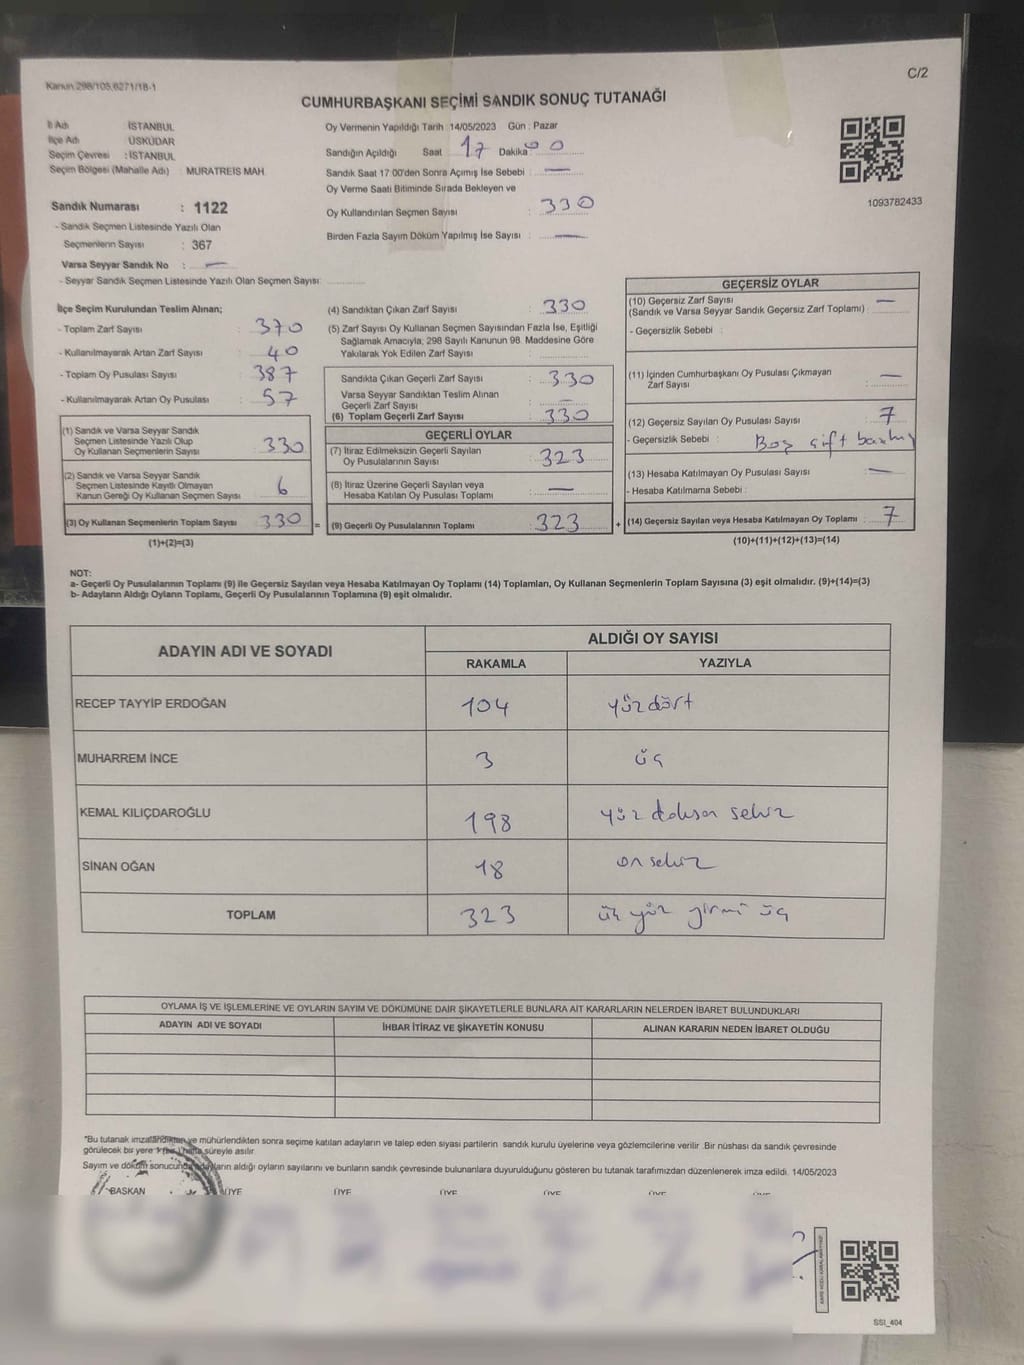 Kanun:298/105,6271/18-1
C/2
CUMHURBAŞKANI SEÇİMİ SANDIK SONUÇ TUTANAĞI
İl Adı İSTANBUL
İlçe Adı ÜSKÜDAR
Seçim Çevresi : İSTANBUL
Seçim Bölgesi (Mahalle Adı) MURATREİS MAH.
Sandık Numarası : 1122
- Sandık Seçmen Listesinde Yazılı Olan
Seçmenlerin Sayısı : 367
Varsa Seyyar Sandık No : —
- Seyyar Sandık Seçmen Listesinde Yazılı Olan Seçmen Sayısı:
Oy Vermenin Yapıldığı Tarih :14/05/2023 Gün : Pazar
Sandığın Açıldığı Saat 17 Dakika 00
Sandık Saat 17:00'den Sonra Açımış İse Sebebi : —
Oy Verme Saati Bitiminde Sırada Bekleyen ve
Oy Kullandırılan Seçmen Sayısı : 330
Birden Fazla Sayım Döküm Yapılmış İse Sayısı : —
1093782433
İlçe Seçim Kurulundan Teslim Alınan;
- Toplam Zarf Sayısı : 370
- Kullanılmayarak Artan Zarf Sayısı : 40
- Toplam Oy Pusulası Sayısı : 387
- Kullanılmayarak Artan Oy Pusulası : 57
(1) Sandık ve Varsa Seyyar Sandık
Seçmen Listesinde Yazılı Olup
Oy Kullanan Seçmenlerin Sayısı : 330
(2) Sandık ve Varsa Seyyar Sandık
Seçmen Listesinde Kayıtlı Olmayan
Kanun Gereği Oy Kullanan Seçmen Sayısı : 6
(3) Oy Kullanan Seçmenlerin Toplam Sayısı : 330 =
(1)+(2)=(3)
(4) Sandıktan Çıkan Zarf Sayısı : 330
(5) Zarf Sayısı Oy Kullanan Seçmen Sayısından Fazla İse, Eşitliği
Sağlamak Amacıyla, 298 Sayılı Kanunun 98. Maddesine Göre
Yakılarak Yok Edilen Zarf Sayısı :
Sandıkta Çıkan Geçerli Zarf Sayısı : 330
Varsa Seyyar Sandıktan Teslim Alınan
Geçerli Zarf Sayısı : —
(6) Toplam Geçerli Zarf Sayısı : 330
GEÇERLİ OYLAR
(7) İtiraz Edilmeksizin Geçerli Sayılan
Oy Pusulalarının Sayısı : 323
(8) İtiraz Üzerine Geçerli Sayılan veya
Hesaba Katılan Oy Pusulası Toplamı : —
(9) Geçerli Oy Pusulalarının Toplamı : 323 +
GEÇERSİZ OYLAR
(10) Geçersiz Zarf Sayısı
(Sandık ve Varsa Seyyar Sandık Geçersiz Zarf Toplamı) : —
- Geçersizlik Sebebi :
(11) İçinden Cumhurbaşkanı Oy Pusulası Çıkmayan
Zarf Sayısı : —
(12) Geçersiz Sayılan Oy Pusulası Sayısı : 7
- Geçersizlik Sebebi : Boş çift
(13) Hesaba Katılmayan Oy Pusulası Sayısı : —
- Hesaba Katılmama Sebebi :
(14) Geçersiz Sayılan veya Hesaba Katılmayan Oy Toplamı : 7
(10)+(11)+(12)+(13)=(14)
NOT:
a- Geçerli Oy Pusulalarının Toplamı (9) ile Geçersiz Sayılan veya Hesaba Katılmayan Oy Toplamı (14) Toplamları, Oy Kullanan Seçmenlerin Toplam Sayısına (3) eşit olmalıdır. (9)+(14)=(3)
b- Adayların Aldığı Oyların Toplamı, Geçerli Oy Pusulalarının Toplamına (9) eşit olmalıdır.
ADAYIN ADI VE SOYADI
ALDIĞI OY SAYISI
RAKAMLA YAZIYLA
RECEP TAYYİP ERDOĞAN 104 yüz dört
MUHARREM İNCE 3 üç
KEMAL KILIÇDAROĞLU 198 yüz doksan sekiz
SİNAN OĞAN 18 on sekiz
TOPLAM 323 üç yüz yirmi üç
OYLAMA İŞ VE İŞLEMLERİNE VE OYLARIN SAYIM VE DÖKÜMÜNE DAİR ŞİKAYETLERLE BUNLARA AİT KARARLARIN NELERDEN İBARET BULUNDUKLARI
ADAYIN ADI VE SOYADI İHBAR İTİRAZ VE ŞİKAYETİN KONUSU ALINAN KARARIN NEDEN İBARET OLDUĞU
*Bu tutanak imzalandıktan ve mühürlendikten sonra seçime katılan adayların ve talep eden siyasi partilerin sandık kurulu üyelerine veya gözlemcilerine verilir. Bir nüshası da sandık çevresinde
görülecek bir yere 1 (bir) hafta süreyle asılır.
Sayım ve döküm sonucunda adayların aldığı oyların sayılarını ve bunların sandık çevresinde bulunanlara duyurulduğunu gösteren bu tutanak tarafımızdan düzenlenerek imza edildi. 14/05/2023
BAŞKAN ÜYE ÜYE ÜYE ÜYE ÜYE ÜYE
SSI_404